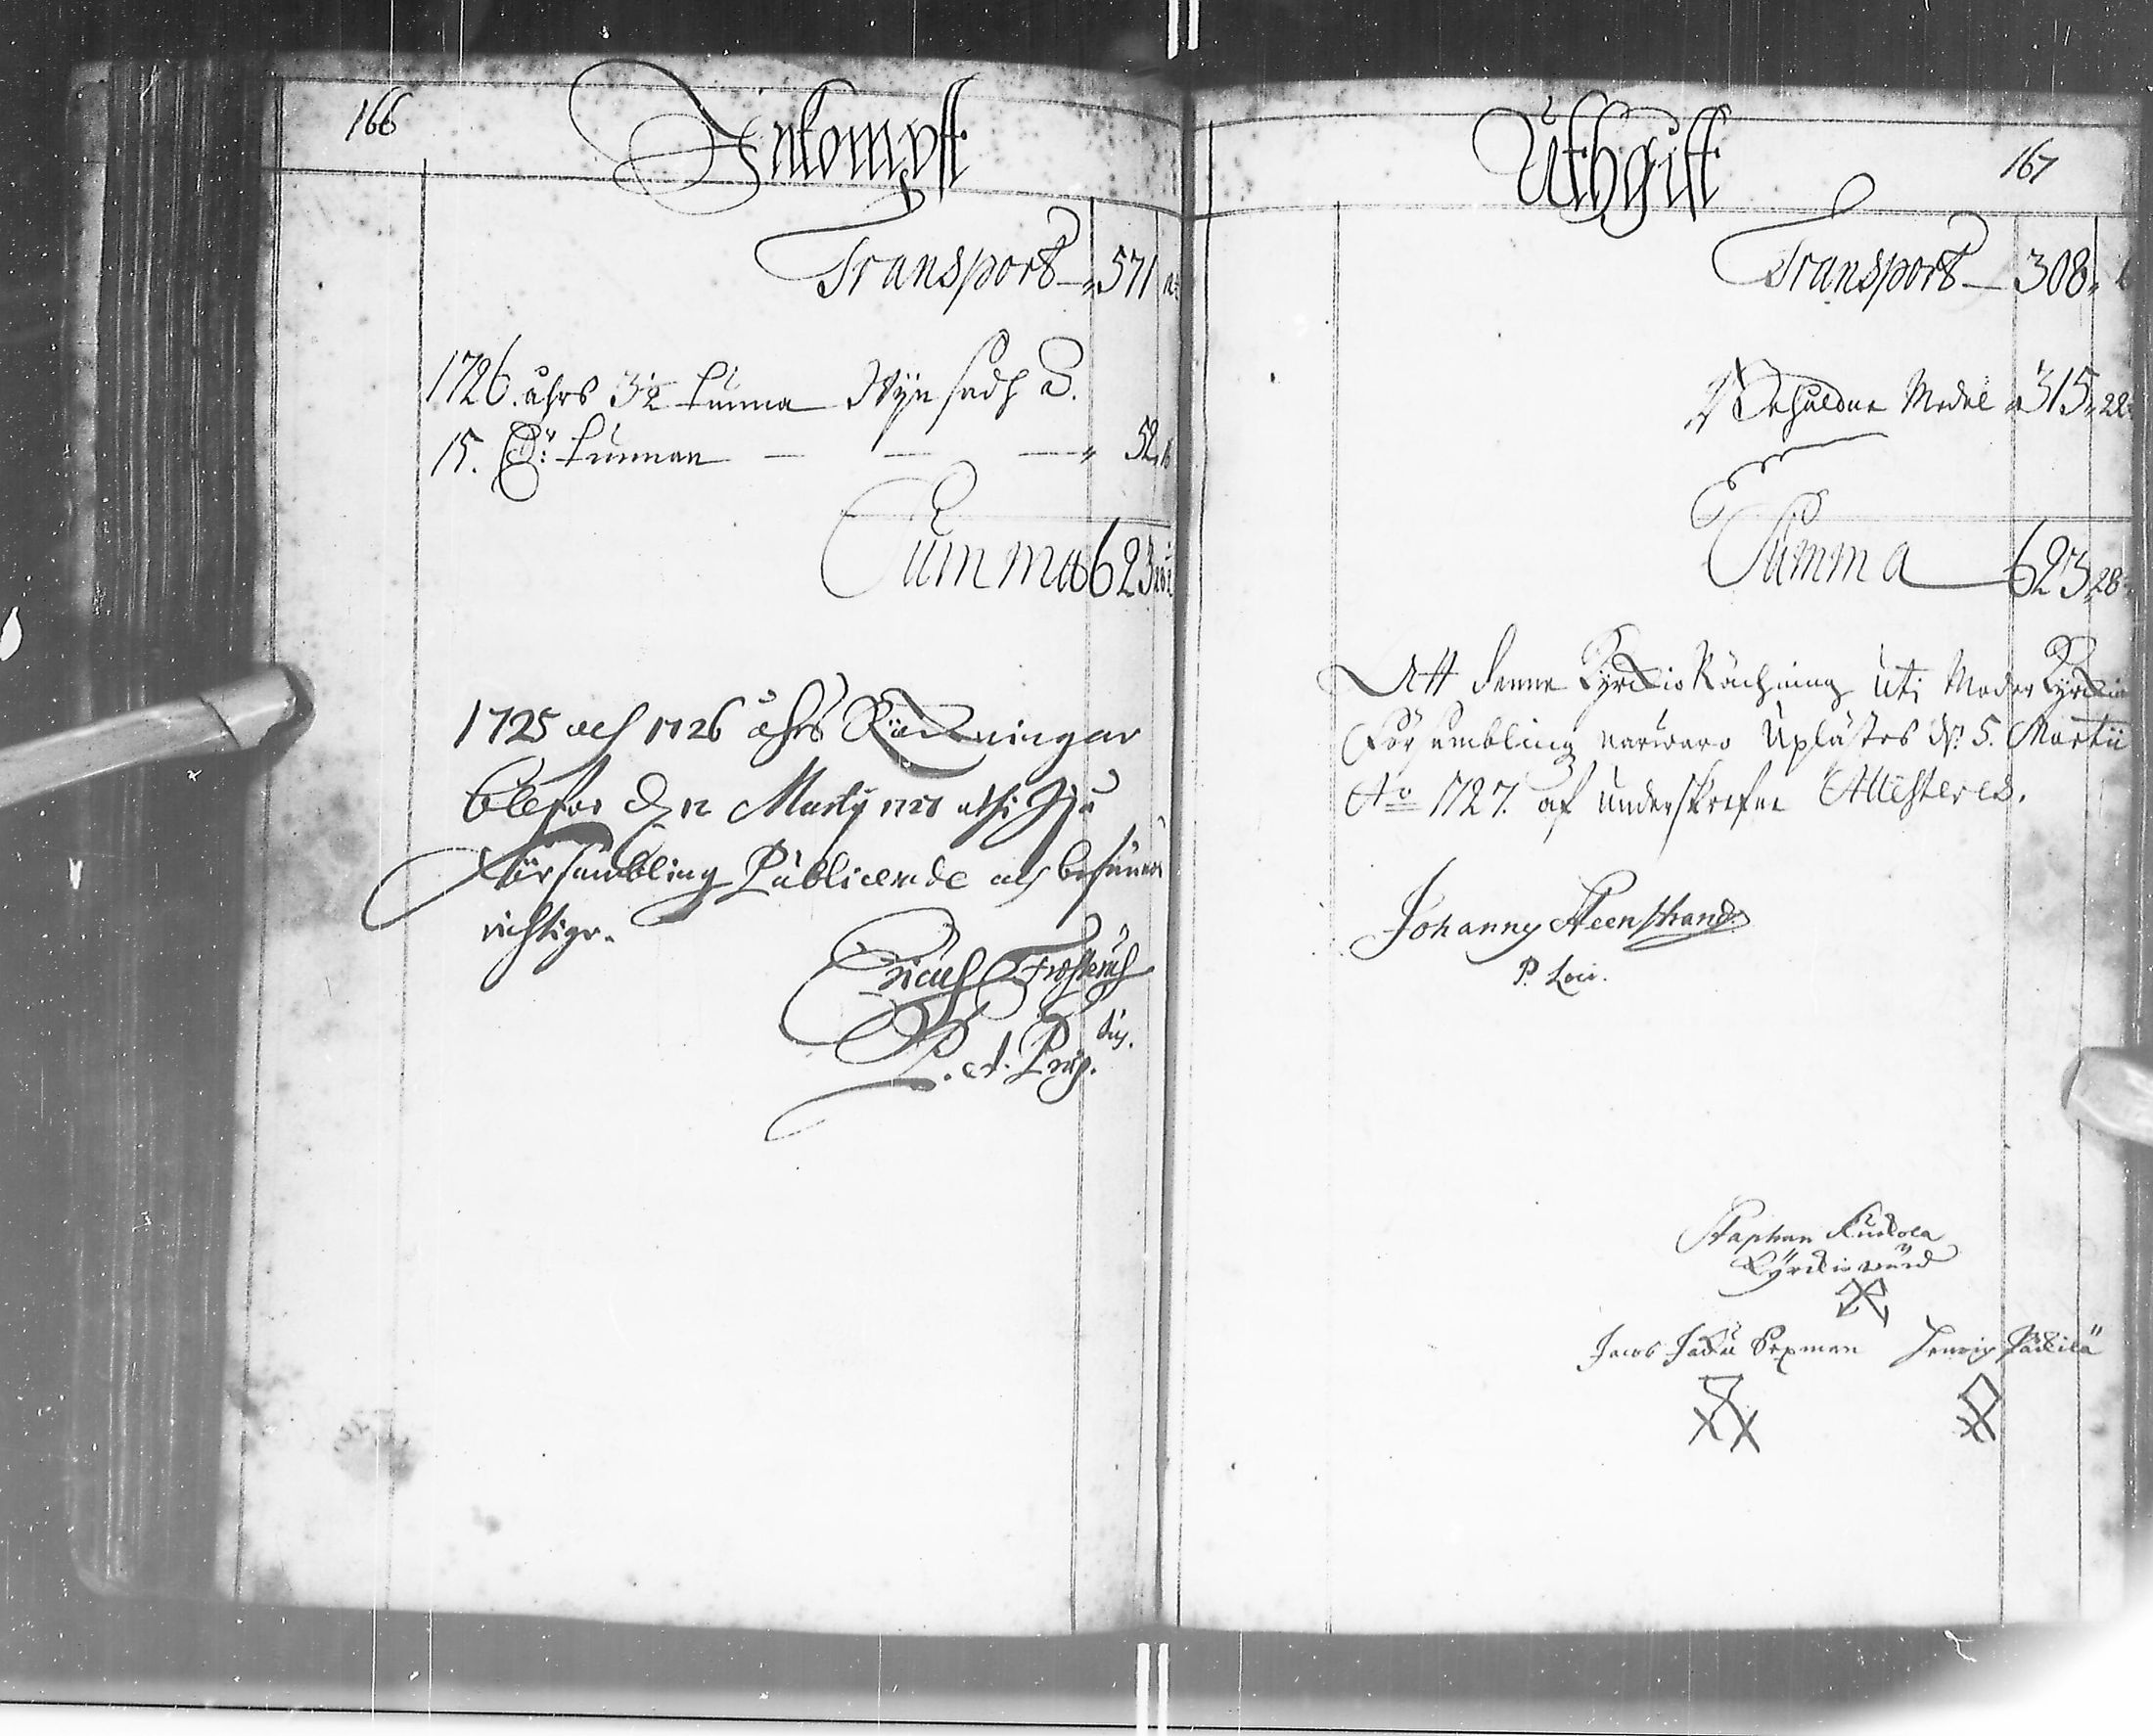 166
Inkompst
Transport — 571
1726. åhrs 3½ tunna Ryn sädh à
15. D:r tunnan — — — " 52,
Summa 623
1725 och 1726 åhrs Räckningar
blefvo d. 12 Martij
Försambling Publicerade och befunne
richtige.
Erich
P. et Præp.
167
Uthgift
Transport — 308,
Behåldne Medel 315, 22
Summa — 623, 28
Att denne Kyrckio Räckning uti Moder Kyrckio
Församblings närwaro Uplästes d. 5. Martii
Ao 1727. af underskrefne Attesteres.
Johannes Steenstrand
P. Loci.
Staphan
Kyrckiowärd
Jacob Sexman Henrich